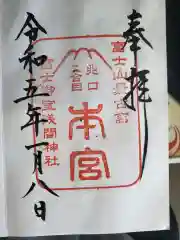 奉拝
富士山最古宮
北口
二合目
本宮
富士御室浅間神社
令和五年一月八日